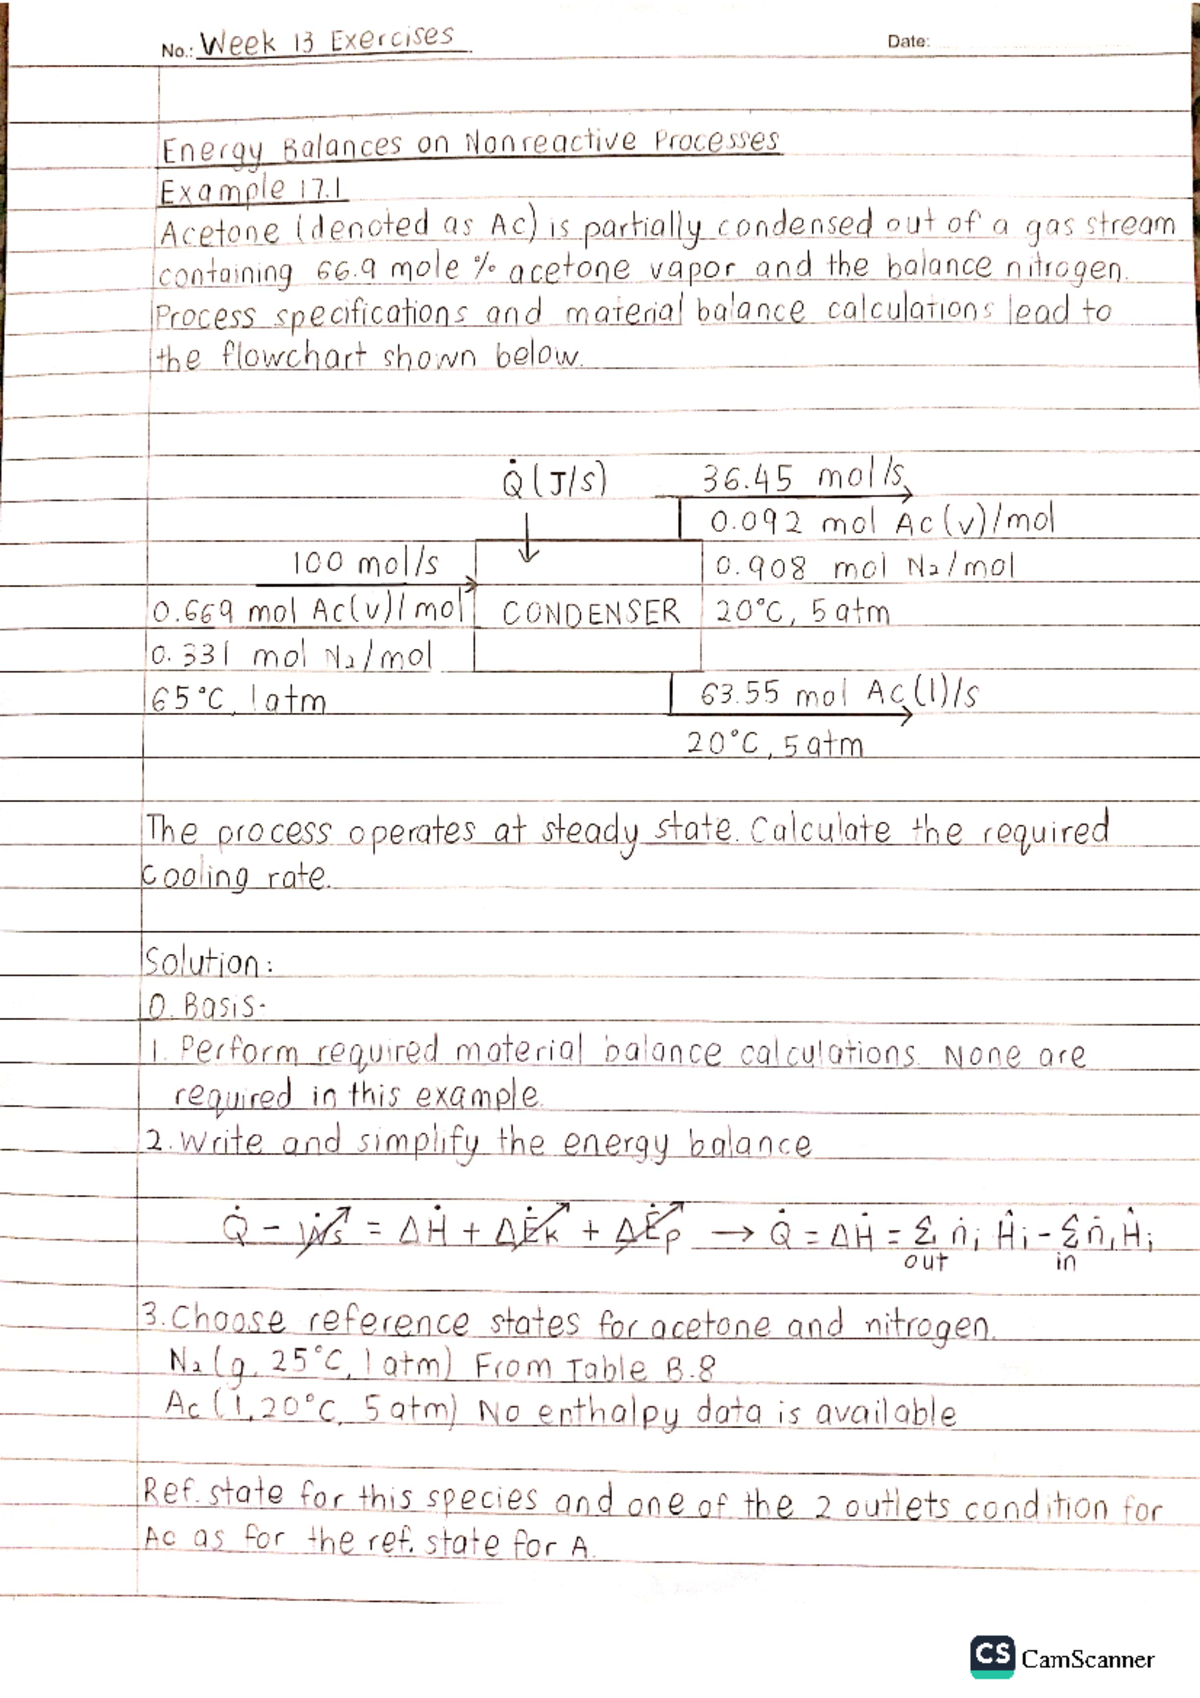 No.: Week 13 Exercises Date:
Energy Balances on Nonreactive Processes
Example 17.1
Acetone (denoted as Ac) is partially condensed out of a gas stream
containing 66.9 mole % acetone vapor and the balance nitrogen.
Process specifications and material balance calculations lead to
the flowchart shown below.
Q̇ (J/s)
36.45 mol/s
0.092 mol Ac(v)/mol
0.908 mol N₂/mol
20°C, 5 atm
100 mol/s
0.669 mol Ac(v)/mol
0.331 mol N₂/mol
65°C, 1 atm
CONDENSER
63.55 mol Ac(l)/s
20°C, 5 atm
The process operates at steady state. Calculate the required
cooling rate.
Solution:
0. Basis-
1. Perform required material balance calculations. None are
required in this example.
2. Write and simplify the energy balance
Q̇ - Ẇs = ΔḢ + ΔĖk + ΔĖp → Q̇ = ΔḢ = Σ ṅi Ĥi - Σ ṅi Ĥi
out in
3. Choose reference states for acetone and nitrogen.
N₂ (g, 25°C, 1 atm) From Table B.8
Ac (l, 20°C, 5 atm) No enthalpy data is available
Ref. state for this species and one of the 2 outlets condition for
Ac as for the ref. state for A.
CS CamScanner